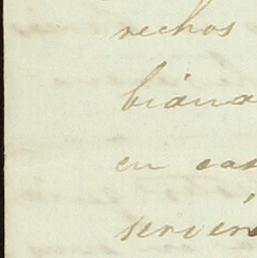 rechos
biana
en cas
servin